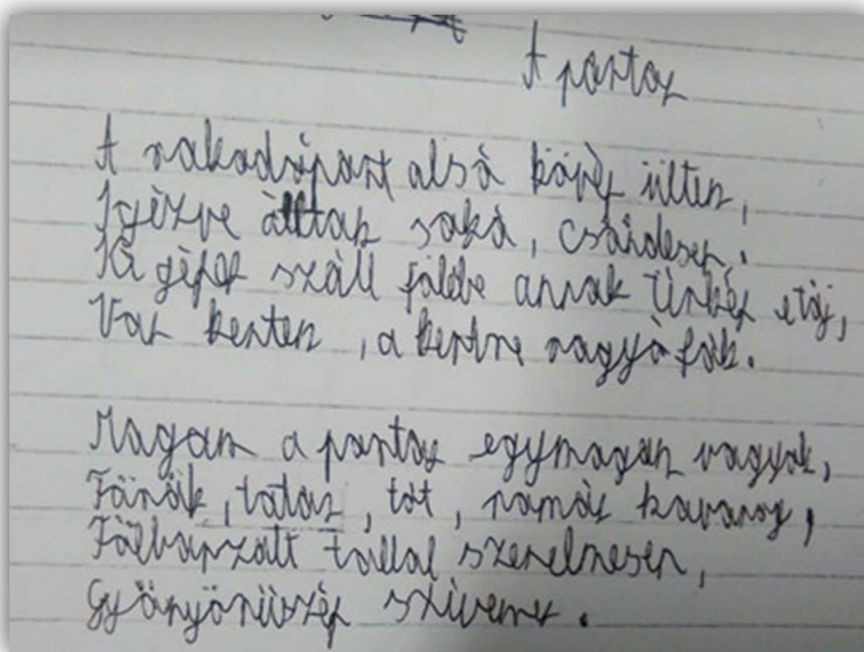 A parton
A rakodópart alsó kövén ültem,
Igézve álltak soká, csöndesen.
Ki gépen száll földbe annak térkép e táj,
Van kertem, a kertre nagyó fák.
Magam a parton egymagam vagyok,
Török, tatár, tót, román kavarog,
Fölborzolt tollal szerelmesen,
Gyönyörűszép szivem.